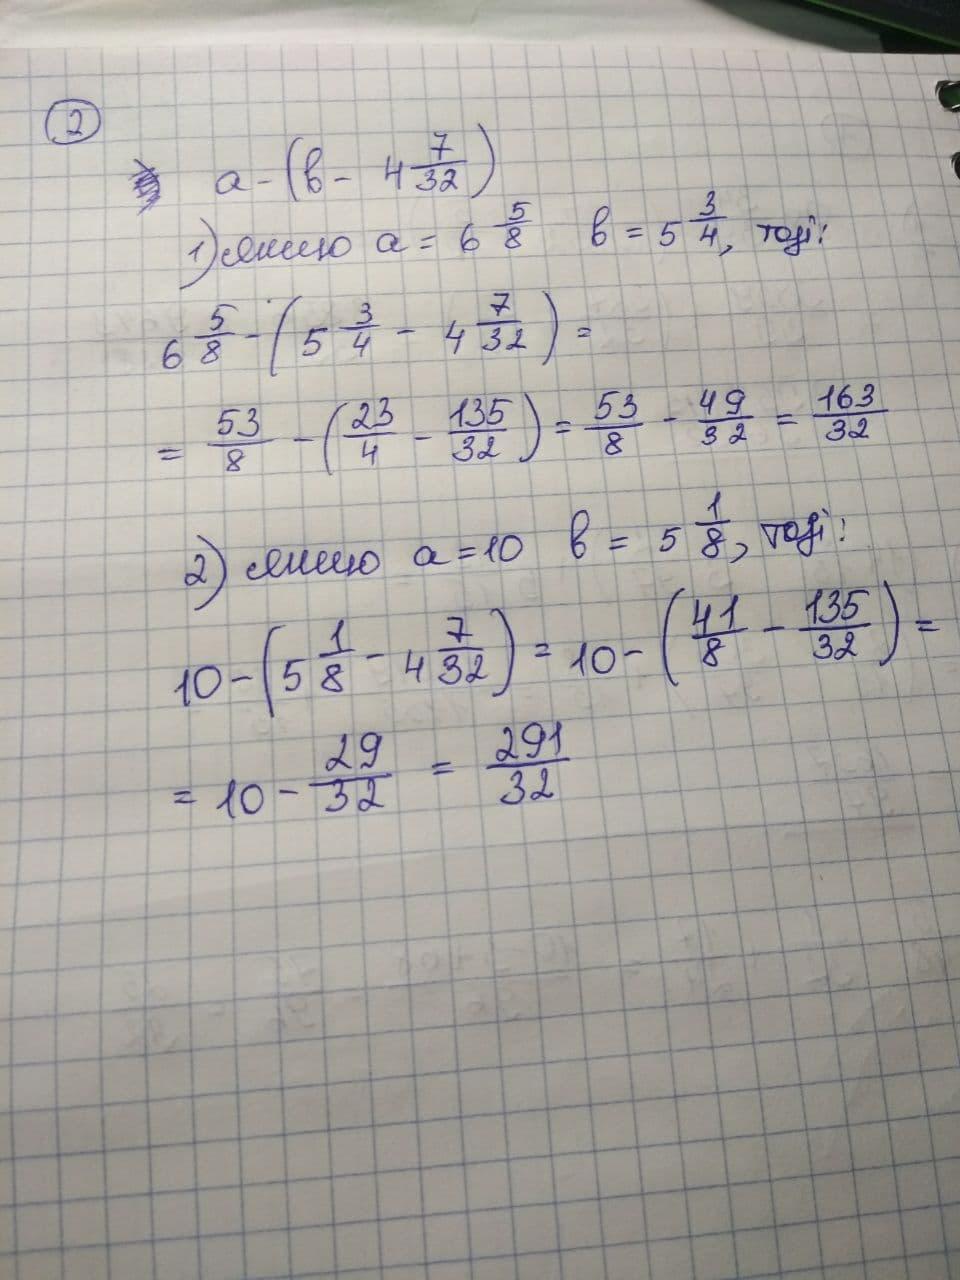 2
a - (b - 4 7/32)
1) якщо a = 6 5/8 b = 5 3/4, тоді:
6 5/8 - (5 3/4 - 4 7/32) =
= 53/8 - (23/4 - 135/32) = 53/8 - 49/32 = 163/32
2) якщо a = 10 b = 5 1/8, тоді:
10 - (5 1/8 - 4 7/32) = 10 - (41/8 - 135/32) =
= 10 - 29/32 = 291/32